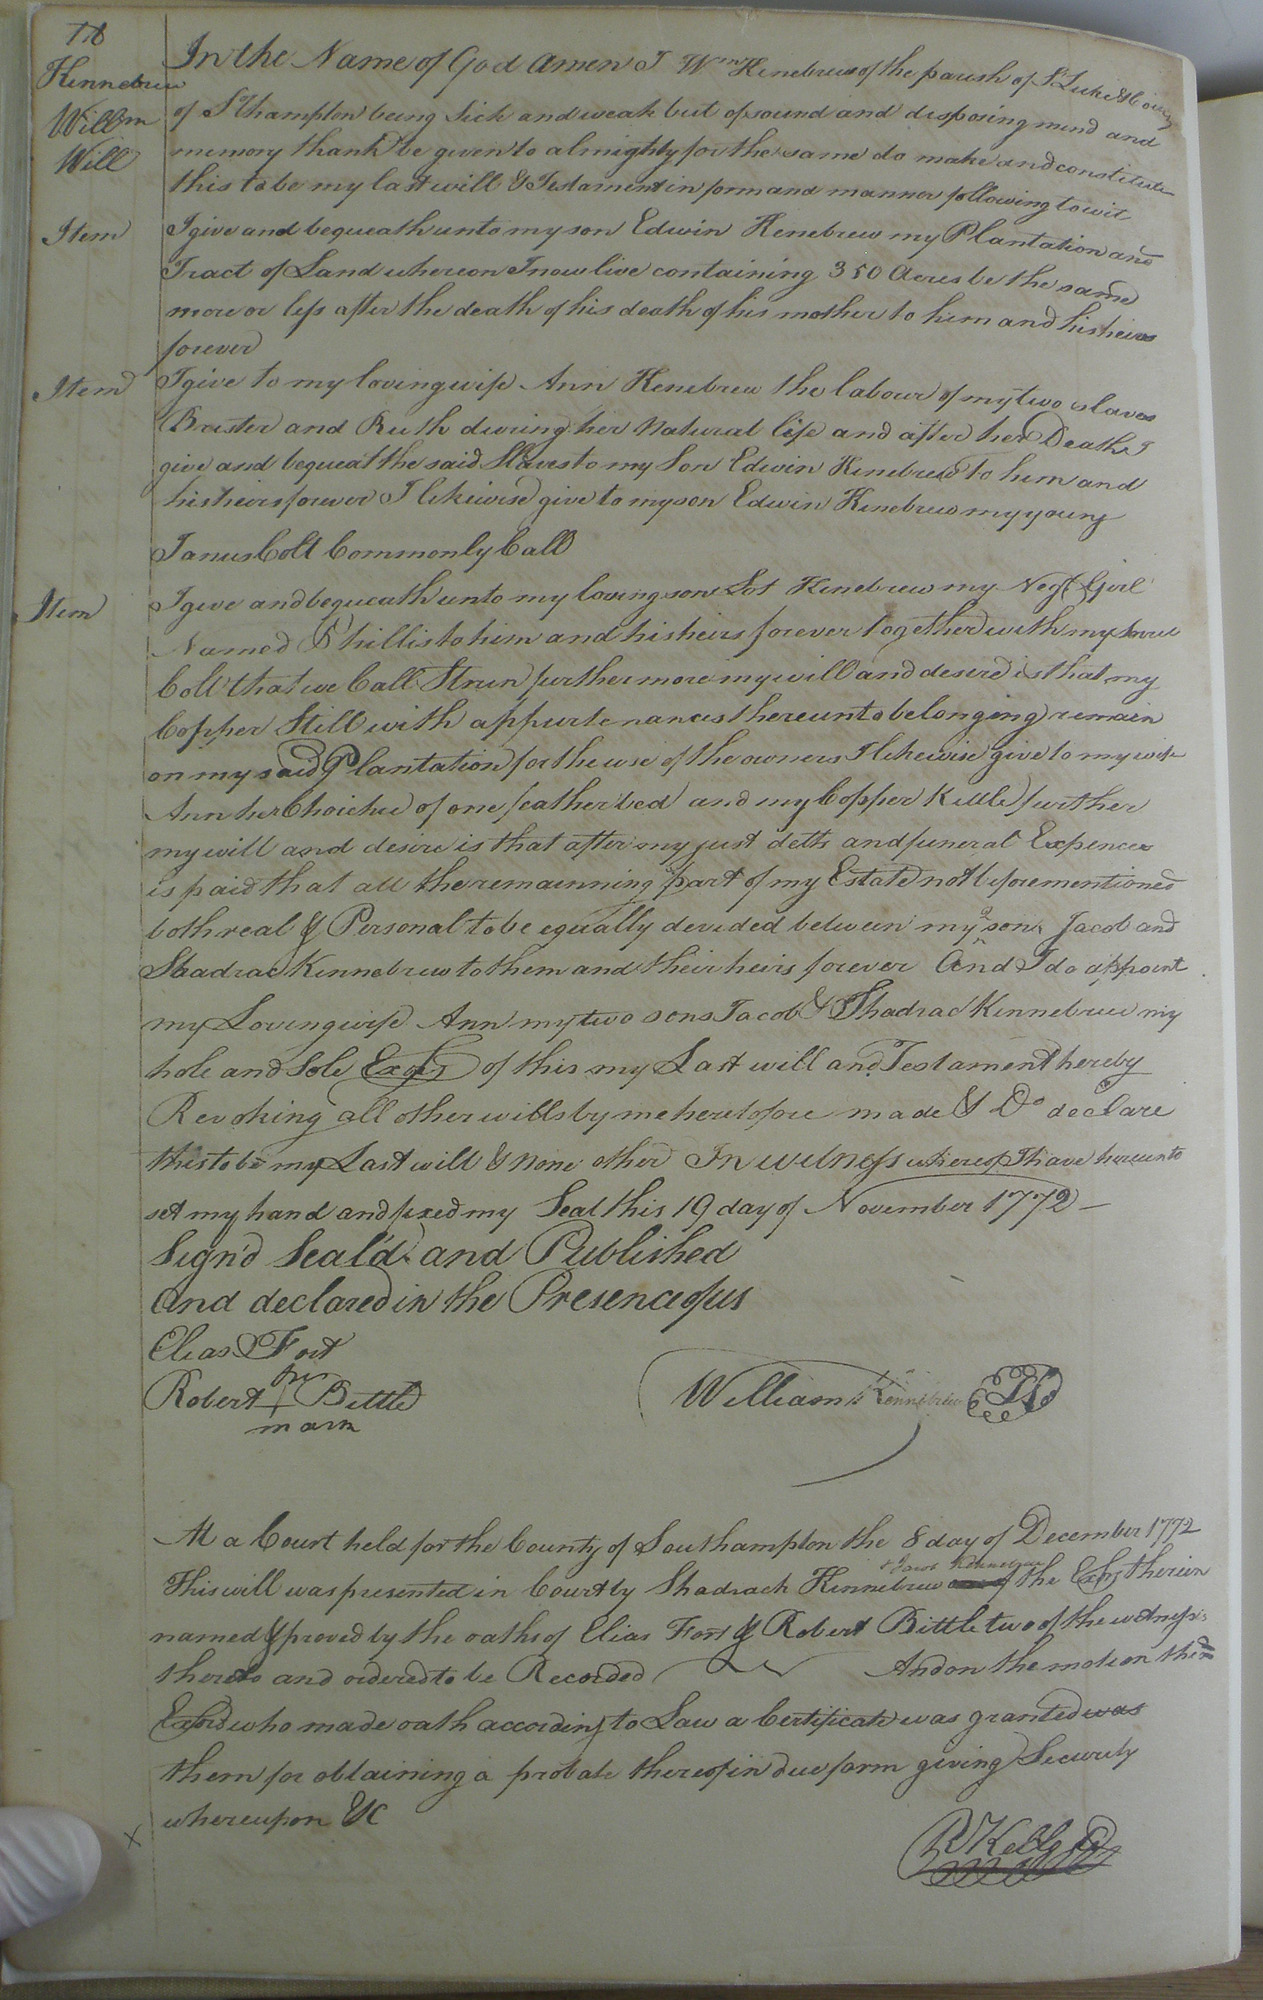 Kennebrew
Willm
Will
In the Name of God Amen I Wm Kenebrew of the parish of St Luke & County
of Sthampton being Sick and weak but of sound and disposing mind and
memory thank be given to almighty for the same do make and constitute
this to be my last will & Testament in form and manner following to wit
Item I give and bequeath unto my son Edwin Kenebrew my Plantation and
Tract of Land whereon I now live containing 350 Acres be the same
more or less after the death of his death of his mother to him and his heirs
forever
Item I give to my loving wife Ann Kenebrew the labour of my two slaves
Brister and Ruth during her Natural life and after her Death I
give and bequeat the said Slaves to my Son Edwin Kenebrew to him and
his heirs forever I likewise give to my son Edwin Kenebrew my young
Janus Colt Commonly Call
Item I give and bequeath unto my loving son Lot Kenebrew my Negr Girl
Named Phillis to him and his heirs forever together with my
Colt that we Call Strun furthermore my will and desire is that my
Copper Still with appurtenances thereunto belonging remain
on my said Plantation for the use of the owners I likewise give to my wife
Ann her Choiche of one feather bed and my Copper Kettle further
my will and desire is that after my just dets and funeral Expences
is paid that all the remainning part of my Estate not beforementioned
both real & Personal to be equally devided between my 2 sons Jacob and
Shadrac Kennebrew to them and their heirs forever And I do appoint
my Loving wife Ann my two sons Jacob & Shadrac Kennebrew my
hole and Sole Exors of this my Last will and Testament hereby
Revoking all other wills by me heretofore made & Do declare
this to be my Last will & none other In witness whereof I have hereunto
set my hand and fixed my Seal this 19 day of November 1772
Sign'd Seal'd and Published
And declared in the Presence of us
Elias Fort
his
Robert Bittle
mark
William Kennebrew
At a Court held for the County of Southampton the 8 day of December 1772
& Jacob Kennebrew
This will was presented in Court by Shadrach Kennebrew of the Exors therein
named & proved by the oaths of Elias Fort & Robert Bittle two of the witnesses
thereto and ordered to be Recorded And on the motion the
who made oath according to Law a Certificate was granted was
them for obtaining a probate thereof in due form giving Security
whereupon &C